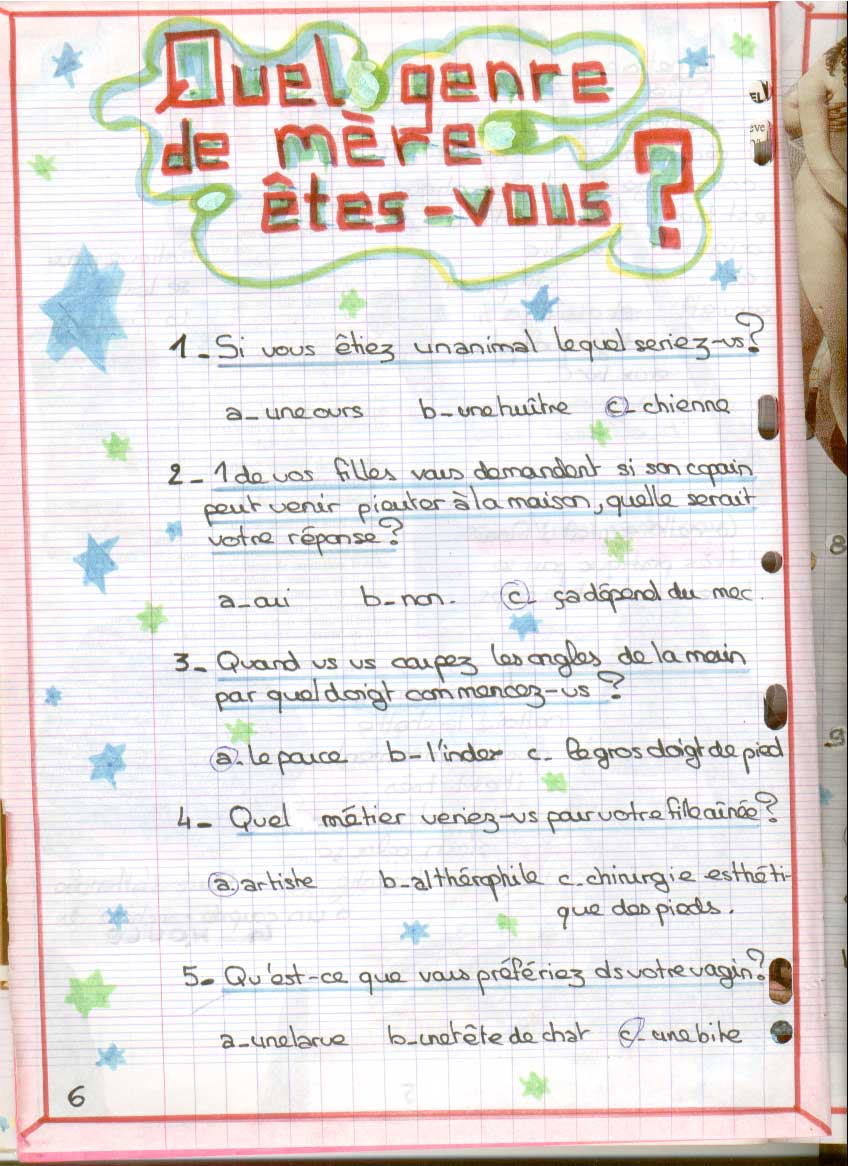 Quel genre
de mère
êtes-vous ?
1- Si vous êtiez un animal lequel seriez-vs?
a- une ours b- une huître c- chienne
2- 1 de vos filles vous demandent si son copain
peut venir pieuter à la maison, quelle serait
votre réponse?
a- oui b- non. c- ça dépend du mec.
3- Quand vs vs coupez les ongles de la main
par quel doigt commencez-vs ?
a. le pouce b- l'inder c. le gros doigt de pied
4- Quel métier veriez-vs pour votre fille aînée?
a. artiste b- althérophile c. chirurgie esthéti-
que des pieds.
5- Qu'est-ce que vous préfériez ds votre vagin?
a- une larve b- une tête de chat c- une bite
6
8
9